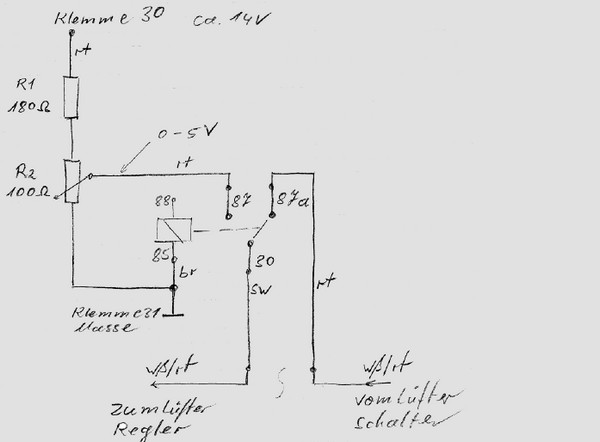 Klemme 30 ca. 14V
rt
R1
180Ω
0-5V
rt
R2
100Ω
88
87
87a
85
30
br
sw
rt
Klemme 31
Masse
wß/rt
wß/rt
zum Lüfter
Regler
vom Lüfter
Schalter